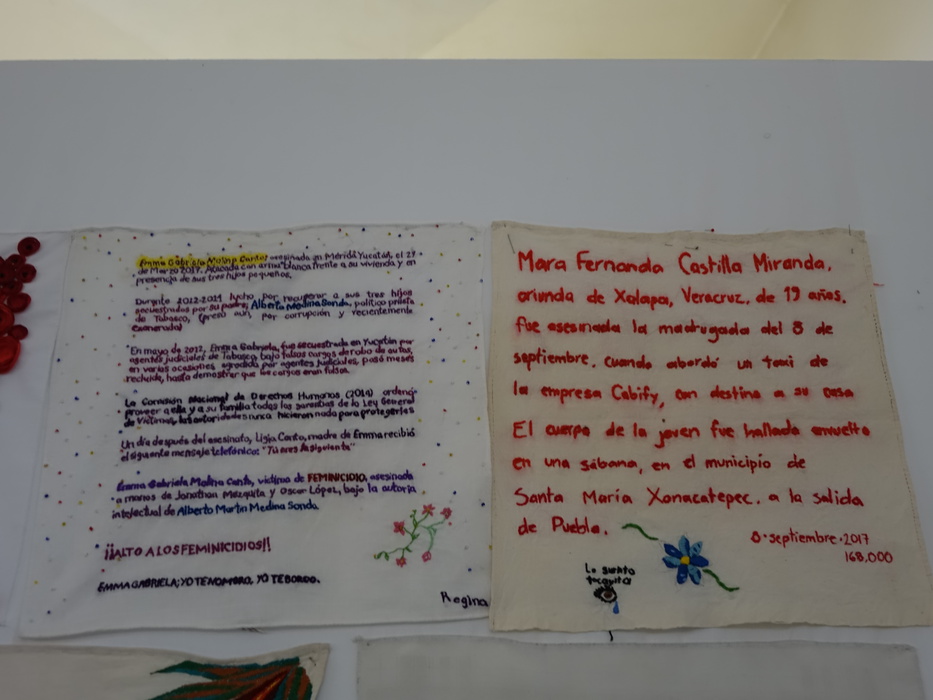 Emma Gabriela Molina Canto, asesinada en Mérida Yucatán, el 27
de Marzo 2017. Atacada con arma blanca frente a su vivienda y en
presencia de sus tres hijos pequeños.
Durante 2012-2014 luchó por recuperar a sus tres hijos
secuestrados por su padre; Alberto Medina Sonda, político priista
de Tabasco, (preso aún, por corrupción y recientemente
exonerado)
En mayo de 2012, Emma Gabriela, fue secuestrada en Yucatán por
agentes judiciales de Tabasco, bajo falsos cargos de robo de autos,
en varias ocasiones, agredida por agentes judiciales, pasó meses
recluida, hasta demostrar que los cargos eran falsos.
La Comisión Nacional de Derechos Humanos (2014) ordenó
proveer a ella y a su familia todas las garantías de la Ley General
de Víctimas, las autoridades nunca hicieron nada para protegerles
Un día después del asesinato, Ligia Canto, madre de Emma recibió
el siguiente mensaje telefónico: "Tú eres la siguiente"
Emma Gabriela Molina Canto, víctima de FEMINICIDIO, asesinada
a manos de Jonathan Mézquita y Oscar López, bajo la autoría
intelectual de Alberto Martín Medina Sonda.
¡¡ALTO A LOS FEMINICIDIOS!!
EMMA GABRIELA; YO TE NOMBRO, YO TE BORDO.
Regina
Mara Fernanda Castilla Miranda,
oriunda de Xalapa, Veracruz, de 19 años.
fue asesinada la madrugada del 8 de
septiembre, cuando abordó un taxi de
la empresa Cabify, con destino a su casa
El cuerpo de la joven fue hallado envuelto
en una sábana, en el municipio de
Santa María Xonacatepec, a la salida
de Puebla.
8·septiembre·2017
168,000
Lo siento